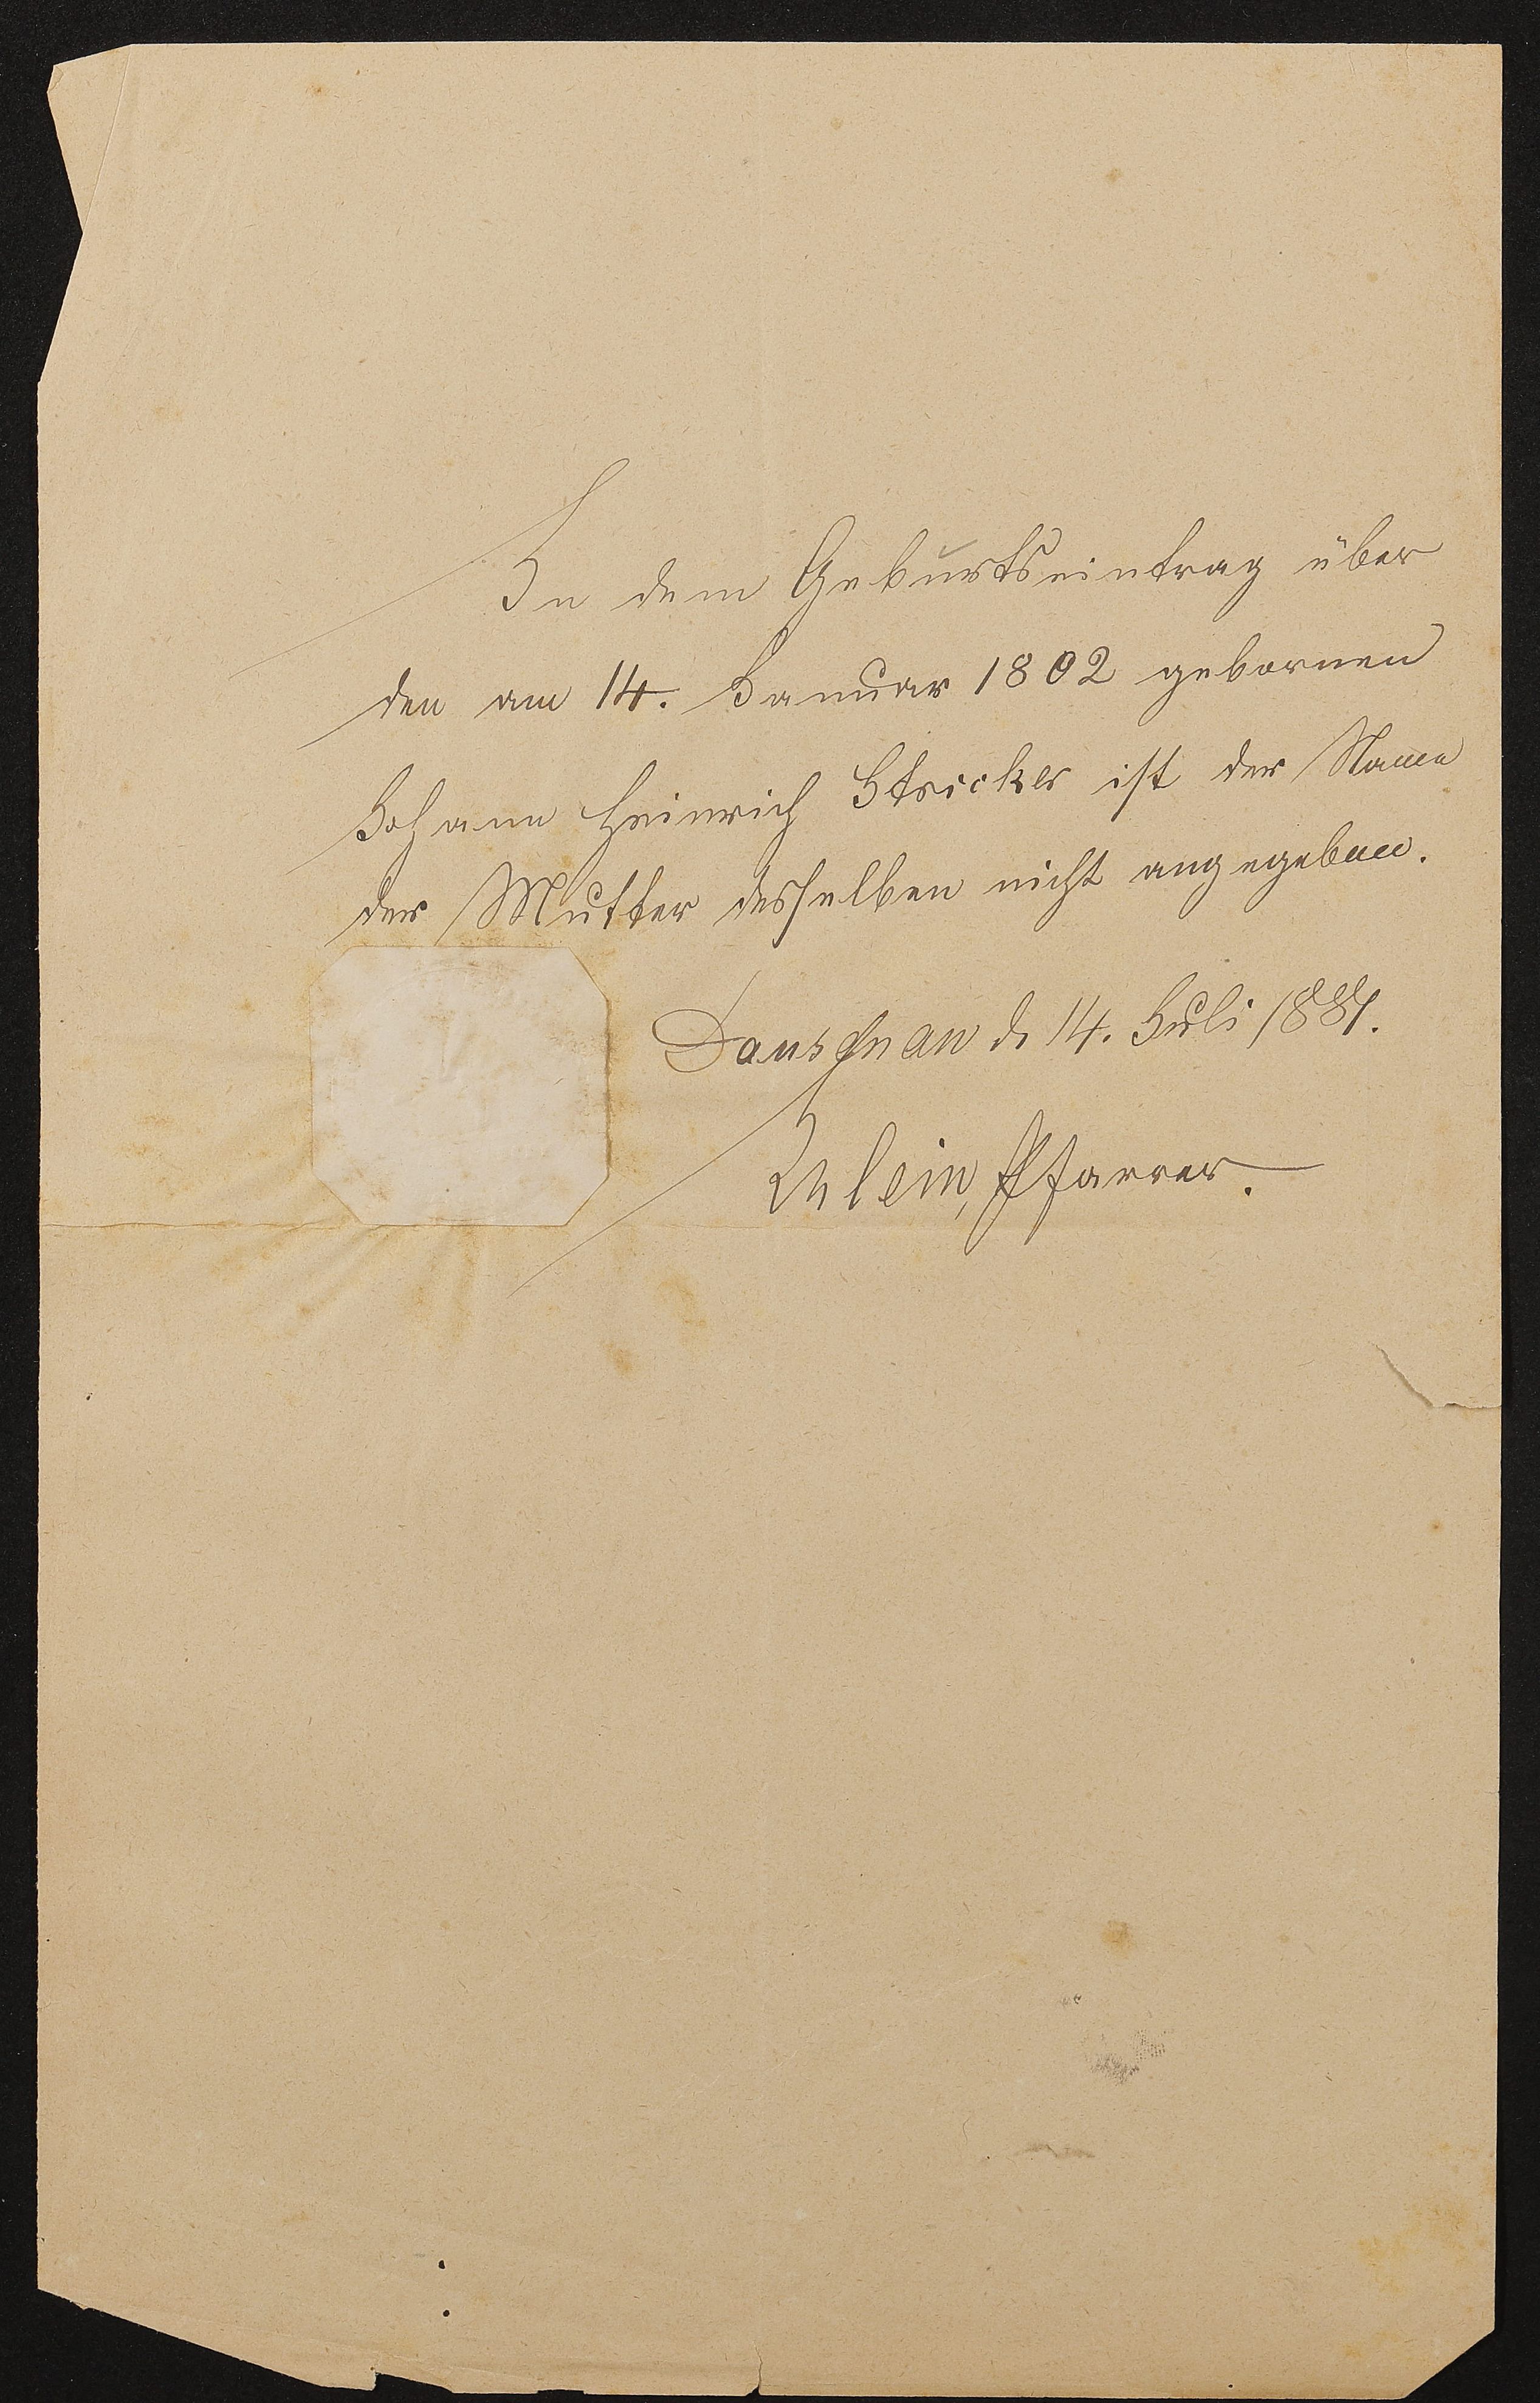 In dem Geburtseintrag über
den am 14. Januar 1802 gebornen
Johann Heinrich Stricker ist der Name
der Mutter desselben nicht angegeben.
Dausenau d. 14. Juli 1881.
Klein, Pfarrer.